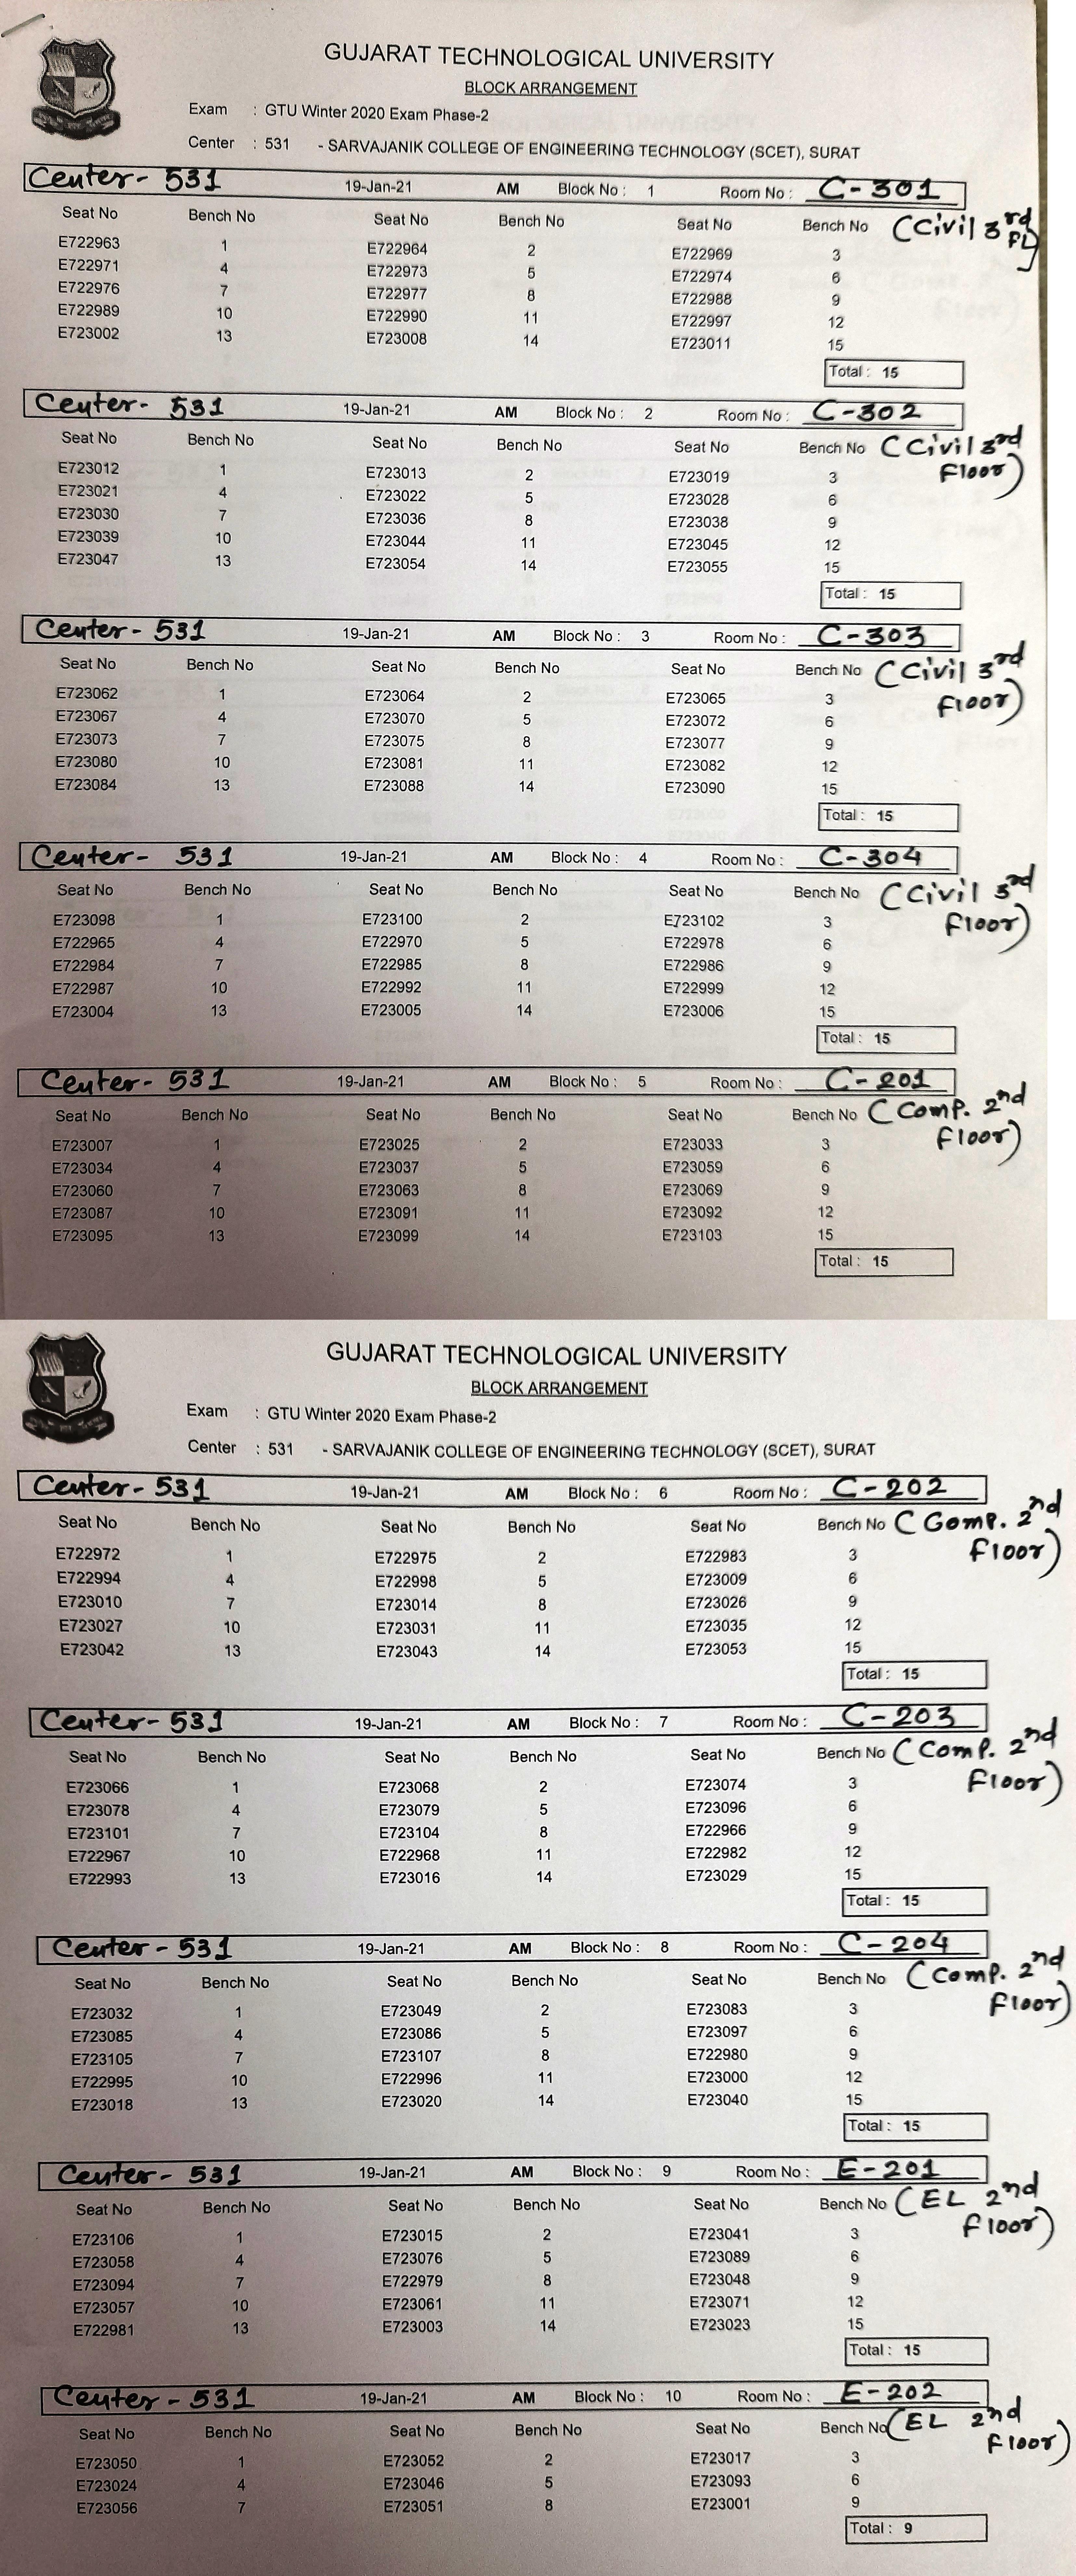 GUJARAT TECHNOLOGICAL UNIVERSITY
BLOCK ARRANGEMENT
Exam : GTU Winter 2020 Exam Phase-2
Center : 531 - SARVAJANIK COLLEGE OF ENGINEERING TECHNOLOGY (SCET), SURAT
Center- 531 19-Jan-21 AM Block No : 1 Room No : C-301
Seat No Bench No Seat No Bench No Seat No Bench No (Civil 3rd
FL)
E722963 1 E722964 2 E722969 3
E722971 4 E722973 5 E722974 6
E722976 7 E722977 8 E722988 9
E722989 10 E722990 11 E722997 12
E723002 13 E723008 14 E723011 15
Total : 15
Center- 531 19-Jan-21 AM Block No : 2 Room No : C-302
Seat No Bench No Seat No Bench No Seat No Bench No (Civil 3rd
Floor)
E723012 1 E723013 2 E723019 3
E723021 4 E723022 5 E723028 6
E723030 7 E723036 8 E723038 9
E723039 10 E723044 11 E723045 12
E723047 13 E723054 14 E723055 15
Total : 15
Center- 531 19-Jan-21 AM Block No : 3 Room No : C-303
Seat No Bench No Seat No Bench No Seat No Bench No (Civil 3rd
Floor)
E723062 1 E723064 2 E723065 3
E723067 4 E723070 5 E723072 6
E723073 7 E723075 8 E723077 9
E723080 10 E723081 11 E723082 12
E723084 13 E723088 14 E723090 15
Total : 15
Center- 531 19-Jan-21 AM Block No : 4 Room No : C-304
Seat No Bench No Seat No Bench No Seat No Bench No (Civil 3rd
Floor)
E723098 1 E723100 2 E723102 3
E722965 4 E722970 5 E722978 6
E722984 7 E722985 8 E722986 9
E722987 10 E722992 11 E722999 12
E723004 13 E723005 14 E723006 15
Total : 15
Center- 531 19-Jan-21 AM Block No : 5 Room No : C-201
Seat No Bench No Seat No Bench No Seat No Bench No (Comp. 2nd
Floor)
E723007 1 E723025 2 E723033 3
E723034 4 E723037 5 E723059 6
E723060 7 E723063 8 E723069 9
E723087 10 E723091 11 E723092 12
E723095 13 E723099 14 E723103 15
Total : 15
GUJARAT TECHNOLOGICAL UNIVERSITY
BLOCK ARRANGEMENT
Exam : GTU Winter 2020 Exam Phase-2
Center : 531 - SARVAJANIK COLLEGE OF ENGINEERING TECHNOLOGY (SCET), SURAT
Center- 531 19-Jan-21 AM Block No : 6 Room No : C-202
Seat No Bench No Seat No Bench No Seat No Bench No (Comp. 2nd
Floor)
E722972 1 E722975 2 E722983 3
E722994 4 E722998 5 E723009 6
E723010 7 E723014 8 E723026 9
E723027 10 E723031 11 E723035 12
E723042 13 E723043 14 E723053 15
Total : 15
Center- 531 19-Jan-21 AM Block No : 7 Room No : C-203
Seat No Bench No Seat No Bench No Seat No Bench No (Comp. 2nd
Floor)
E723066 1 E723068 2 E723074 3
E723078 4 E723079 5 E723096 6
E723101 7 E723104 8 E722966 9
E722967 10 E722968 11 E722982 12
E722993 13 E723016 14 E723029 15
Total : 15
Center- 531 19-Jan-21 AM Block No : 8 Room No : C-204
Seat No Bench No Seat No Bench No Seat No Bench No (Comp. 2nd
Floor)
E723032 1 E723049 2 E723083 3
E723085 4 E723086 5 E723097 6
E723105 7 E723107 8 E722980 9
E722995 10 E722996 11 E723000 12
E723018 13 E723020 14 E723040 15
Total : 15
Center- 531 19-Jan-21 AM Block No : 9 Room No : E-201
Seat No Bench No Seat No Bench No Seat No Bench No (EL 2nd
Floor)
E723106 1 E723015 2 E723041 3
E723058 4 E723076 5 E723089 6
E723094 7 E722979 8 E723048 9
E723057 10 E723061 11 E723071 12
E722981 13 E723003 14 E723023 15
Total : 15
Center - 531 19-Jan-21 AM Block No : 10 Room No : E-202
Seat No Bench No Seat No Bench No Seat No Bench No (EL 2nd
Floor)
E723050 1 E723052 2 E723017 3
E723024 4 E723046 5 E723093 6
E723056 7 E723051 8 E723001 9
Total : 9